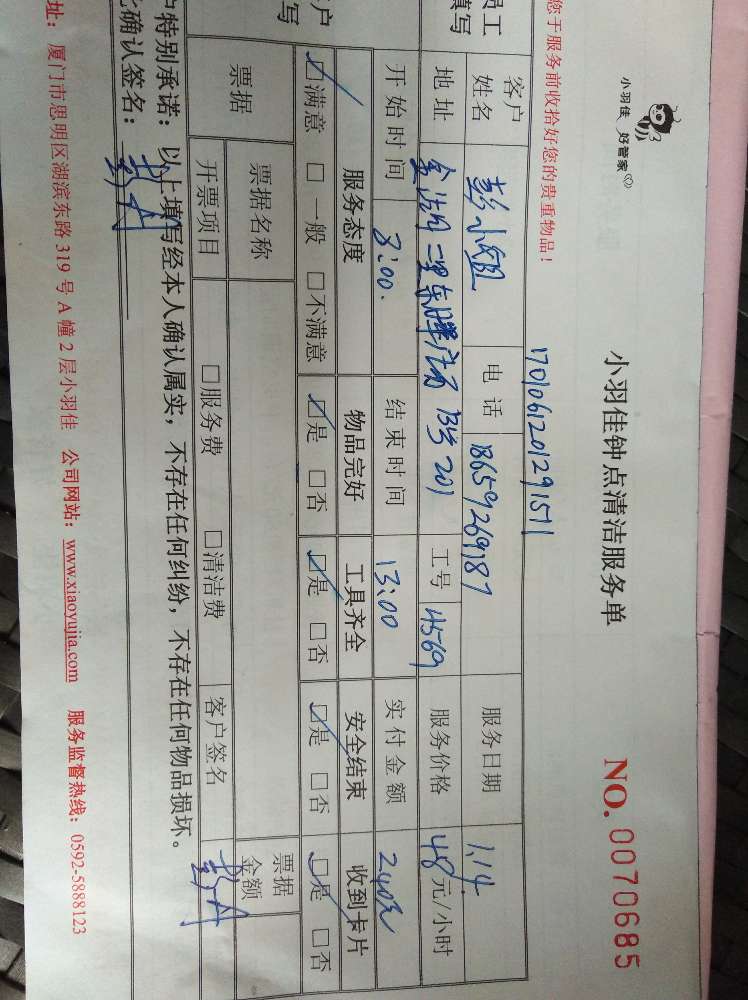 小羽佳 好管家
小羽佳钟点清洁服务单
NO. 0070685
17010612012915711
您于服务前收拾好您的贵重物品!
员工
填写
客户
姓名
彭小姐
电 话
18659269187
服务日期
1.14
地 址
二里东 B3 201
工号
4569
服务价格
48元/小时
开始时间
8:00.
结束时间
13:00
实付金额
240元
户
写
服务态度
物品完好
工具齐全
安全结束
收到卡片
☑满意 □一般 □不满意
☑是 □否
☑是 □否
☑是 □否
☑是 □否
票据
票据名称
票据
金额
开票项目
□服务费
□清洁费
客户签名
户特别承诺:以上填写经本人确认属实,不存在任何纠纷,不存在任何物品损坏。
此确认签名:
址:厦门市思明区湖滨东路 319 号 A 幢 2 层小羽佳 公司网站:www.xiaoyujia.com 服务监督热线:0592-5888123